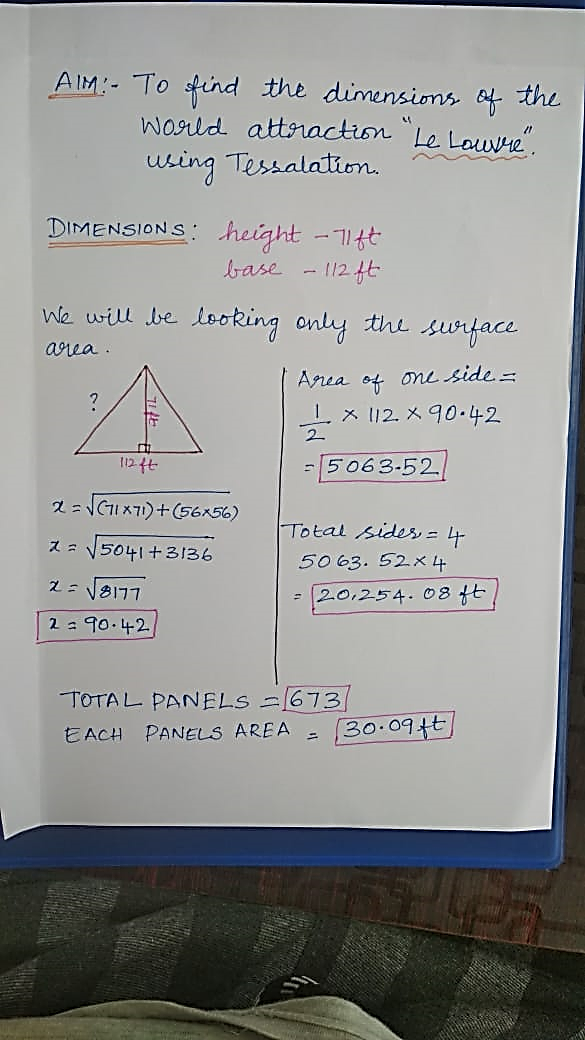 AIM:- To find the dimensions of the
World attraction "Le Louvre".
using Tessalation.
DIMENSIONS: height - 71ft
base - 112 ft
We will be looking only the surface
area.
?
71ft
112 ft
x = √(71×71)+(56×56)
x = √5041+3136
x = √8177
x = 90.42
Area of one side =
1/2 × 112 × 90.42
= 5063.52
Total sides = 4
5063.52×4
= 20,254.08 ft
TOTAL PANELS = 673
EACH PANELS AREA = 30.09ft